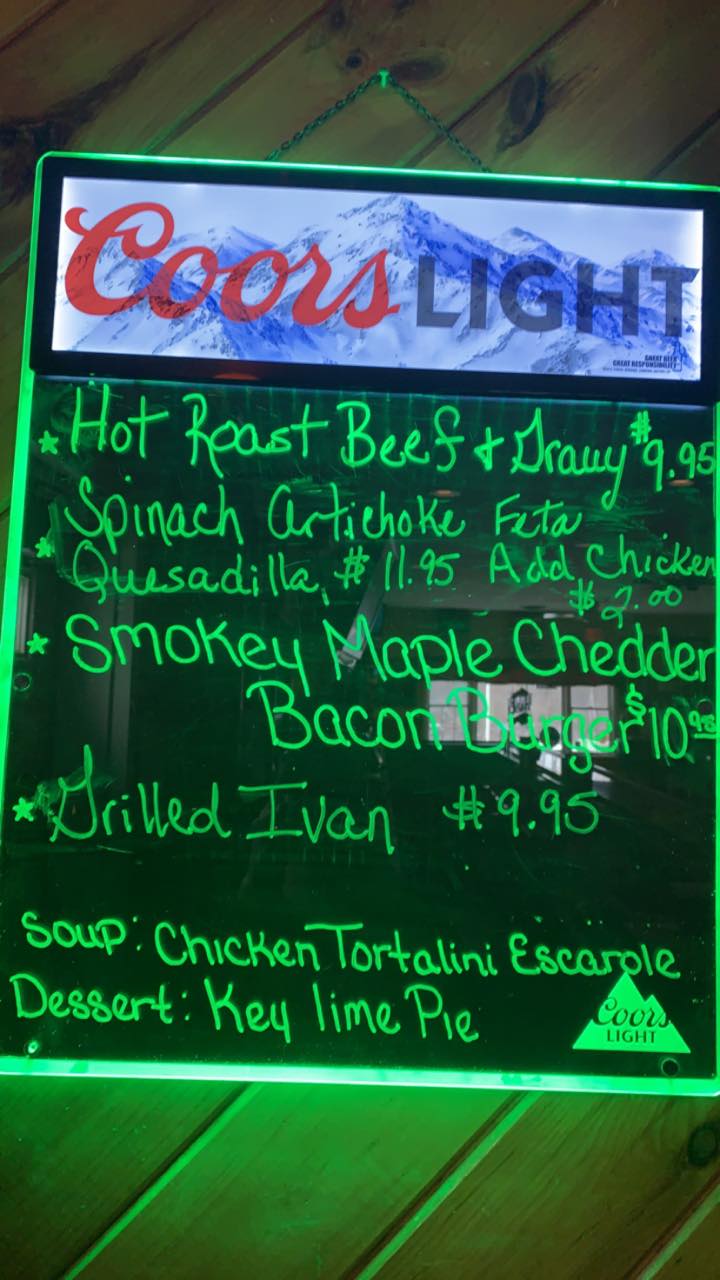 Coors LIGHT
GREAT BEER
GREAT RESPONSIBILITY
* Hot Roast Beef + Gravy #9.95
* Spinach Artichoke Feta
Quesadilla, # 11.95 Add Chicken
$ 2.00
* Smokey Maple Chedder
Bacon Burger $10 95
* Grilled Ivan #9.95
Soup: Chicken Tortalini Escarole
Dessert: Key lime Pie
Coors
LIGHT